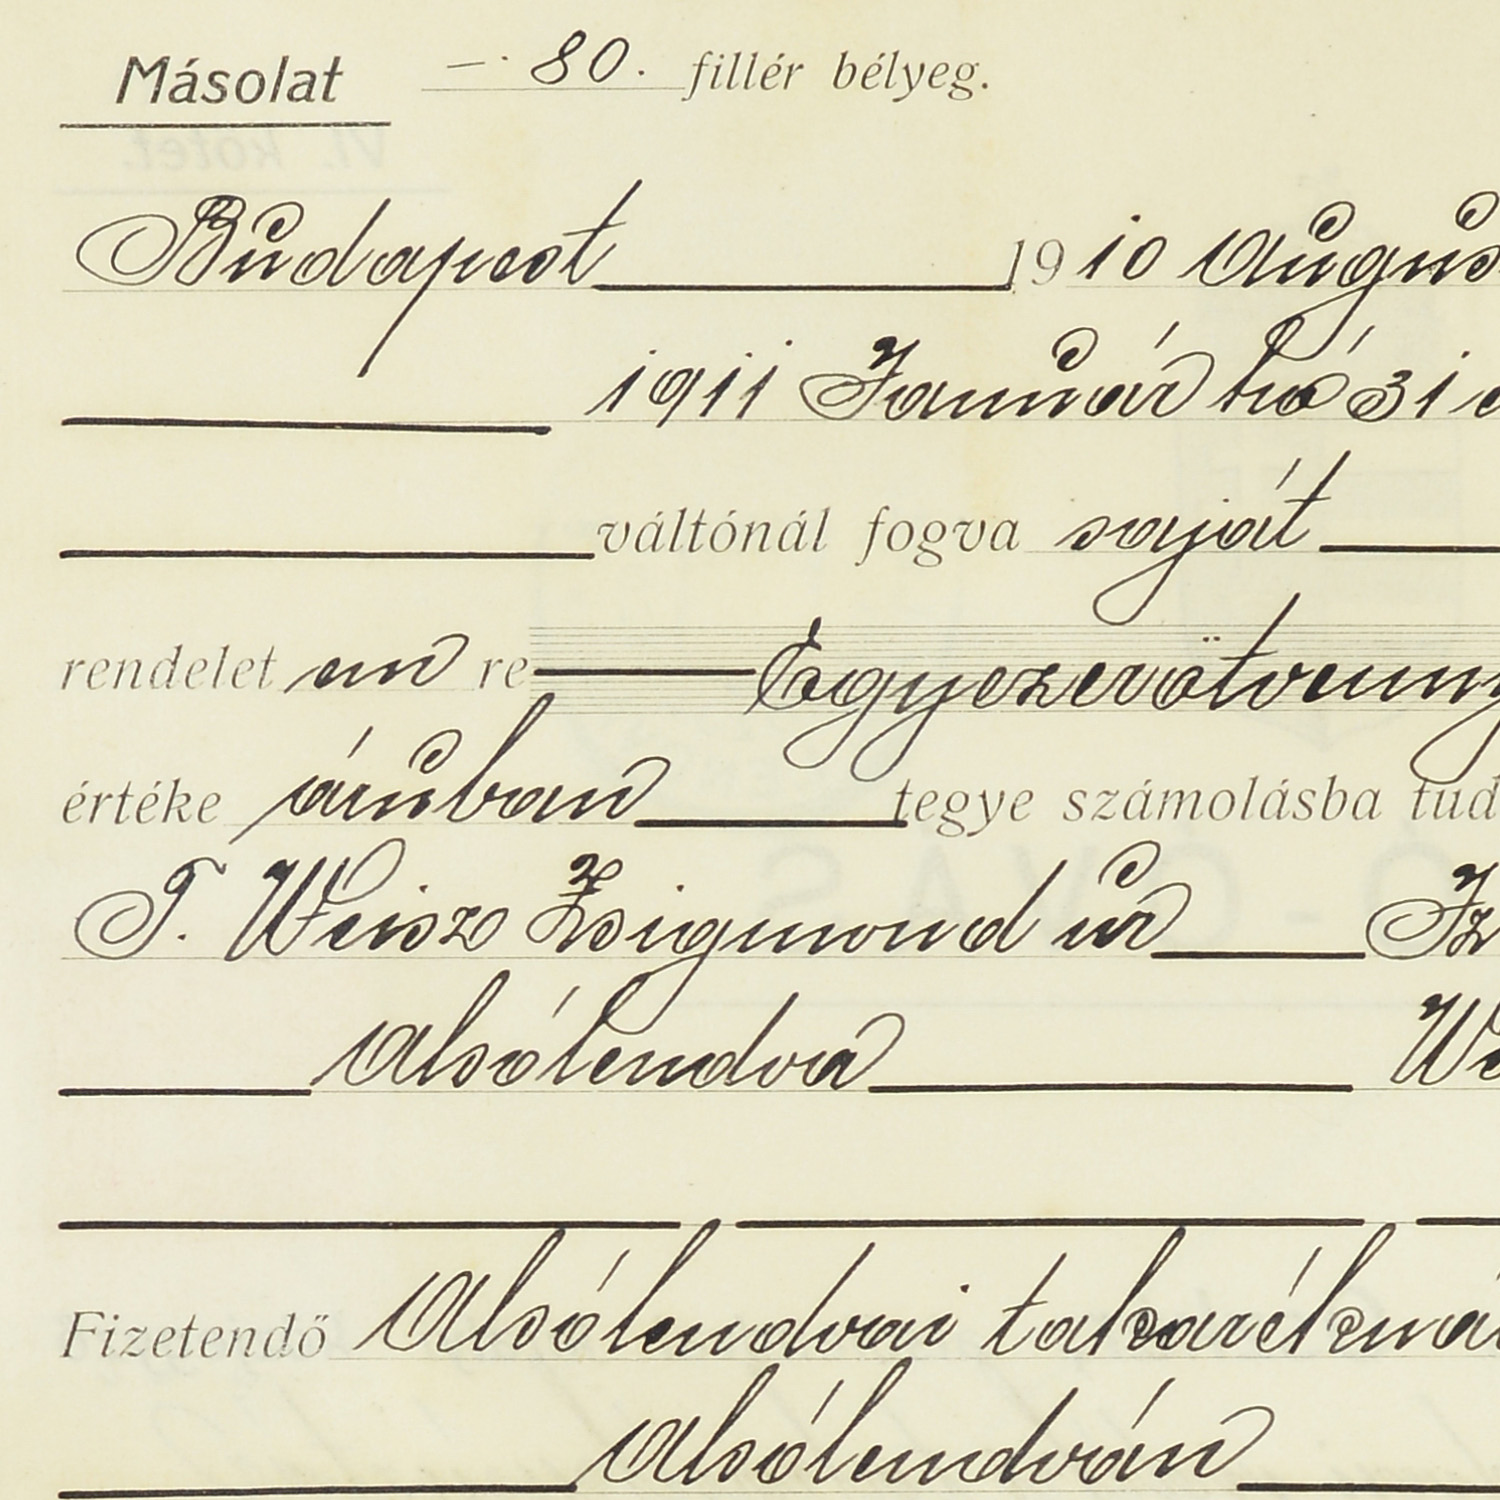 Másolat —. 80. fillér bélyeg.
Budapest 1910 Augus
1911 Január hó 31
váltónál fogva saját
rendelet em re Egyezerötvenny
értéke áruban tegye számolásba tud
T. Weisz Zsigmond úr Iz
Alsólendva We
Fizetendő Alsólendvai takarékná
Alsólendván